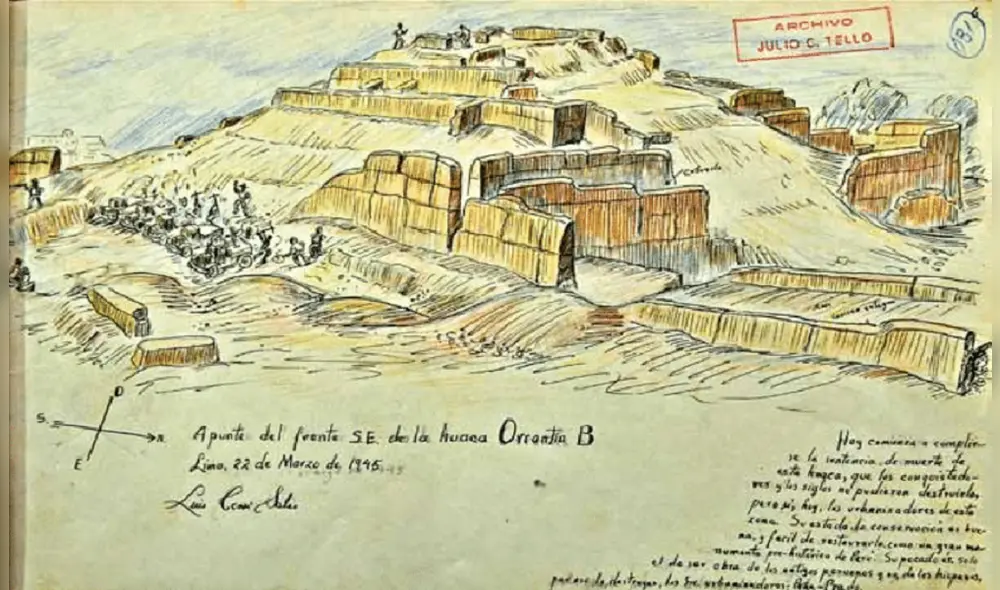 ARCHIVO
JULIO C. TELLO
S.
O
N
E
Apunte del frente S.E. de la huaca Orrantia B
Lima, 22 de Marzo de 1945
Luis Ccosi Salas
Hoy comienza a cumplir-
se la sentencia de muerte de
esta huaca, que los conquistado-
res y los siglos no pudieron destruirla,
pero si, hoy, los urbanizadores de esta
zona. Su estado de conservación es bue-
na, y facil de restaurarla como un gran mo-
numento pre-histórico de Perú. Su pecado es, solo
el de ser obra de los antigos peruanos y no de los hispanos,
los urbanizadores: